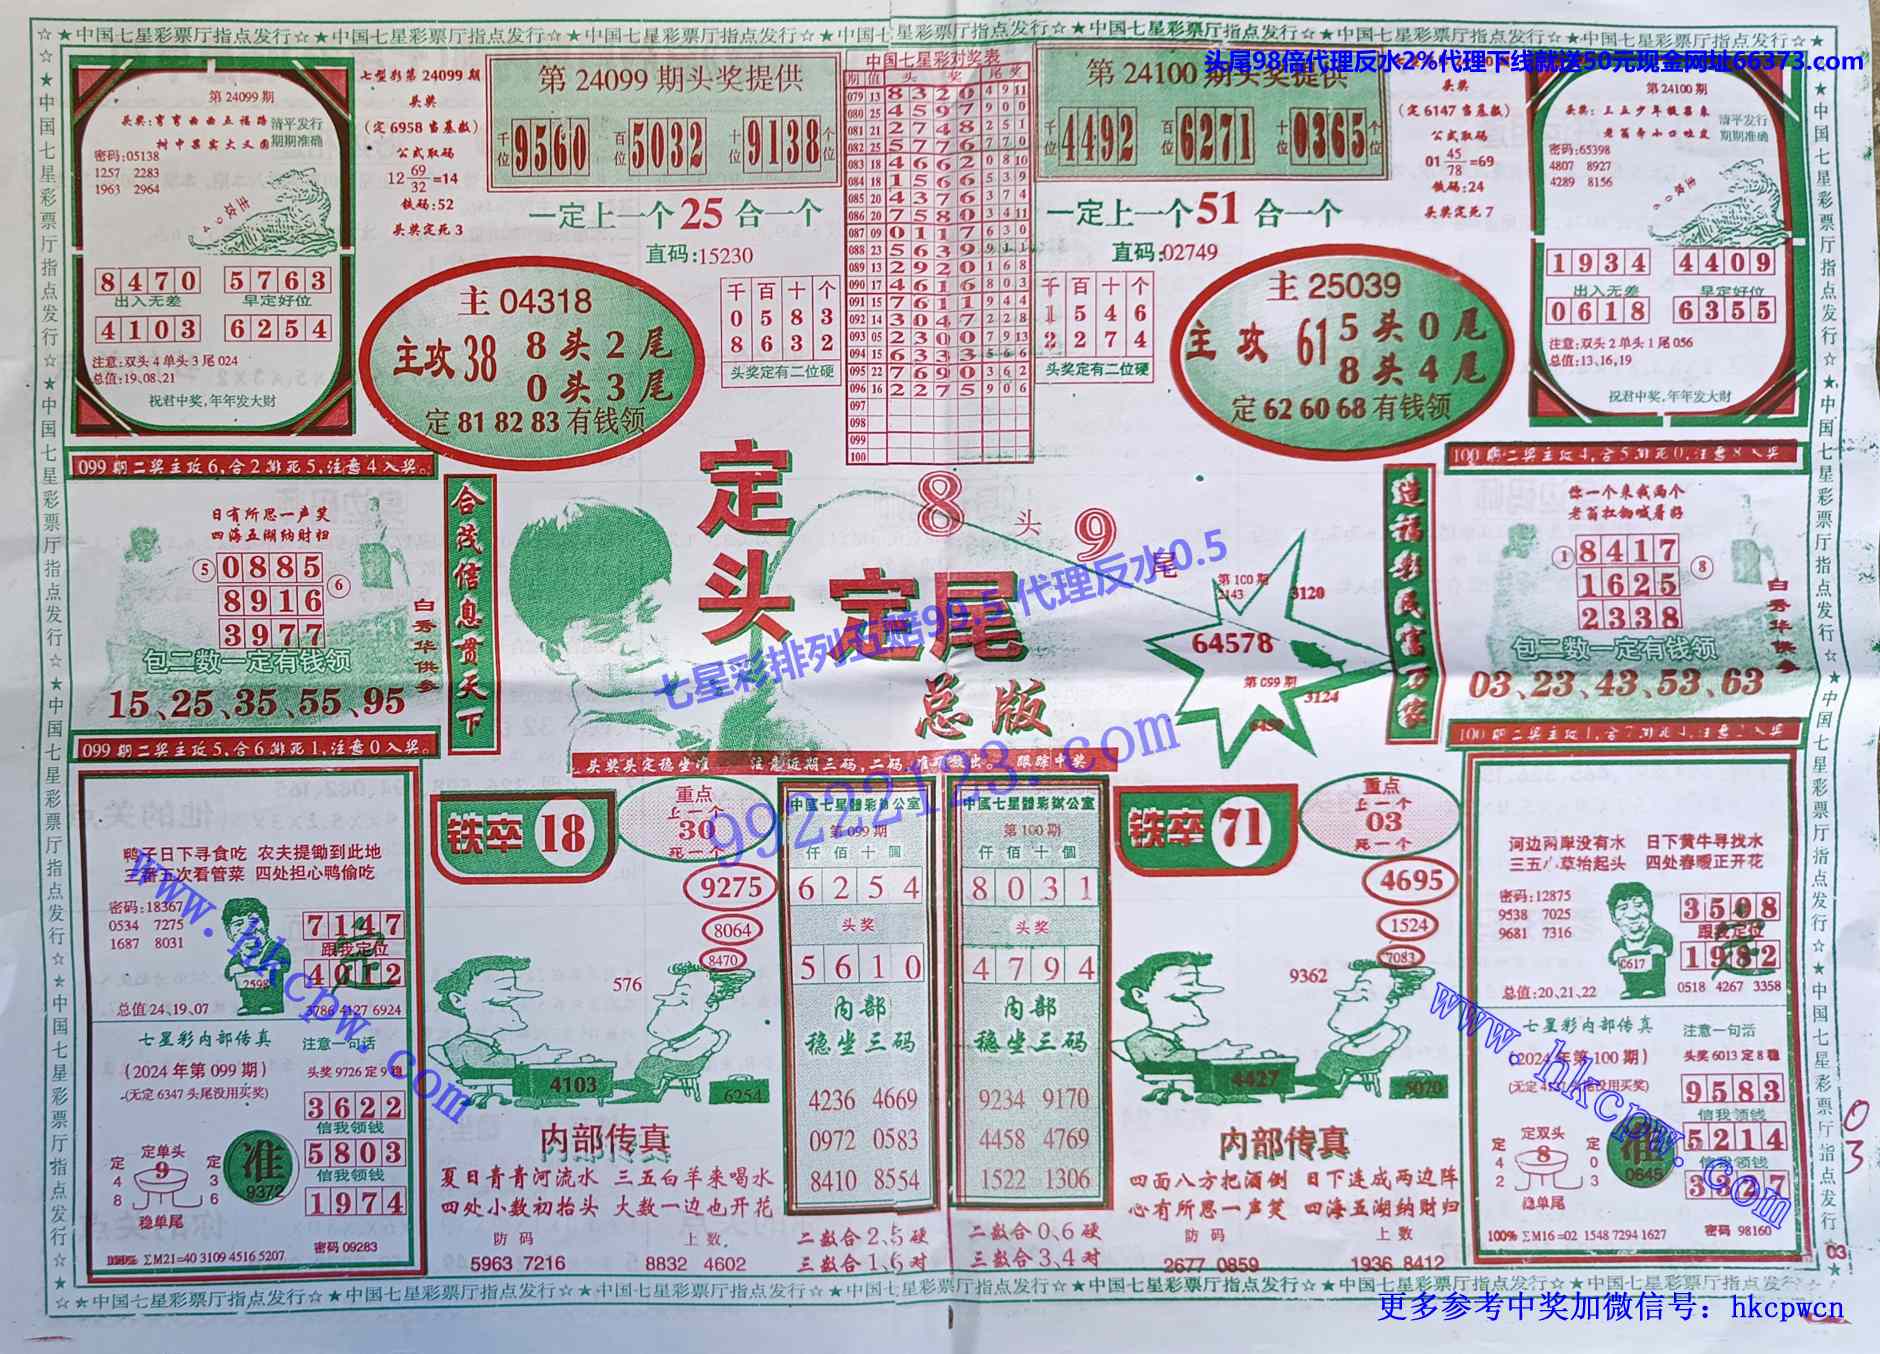 ☆★中国七星彩票厅指点发行☆★中国七星彩票厅指点发行☆★中国七星彩票厅指点发行☆★中国七星彩票厅指点发行☆★中国七星彩票厅指点发行☆★中国七星彩票厅指点发行☆★中国七星彩票厅指点发行☆★
头尾98倍代理反水2%代理下线就送50元现金网址66373.com
第24099期
头奖:弯弯曲曲五福路
树中果实大又圆
清平发行
期期准确
密码:05138
1257 2283
1963 2964
主攻。
8470 5763
出入无差 早定好位
4103 6254
注意:双头4单头3尾024
总值:19、08、21
祝君中奖,年年发大财
七型彩第24099期
头奖
(定6958当基数)
公式取码
12 69/32 =14
铁码:52
头奖定死3
第24099期头奖提供
千位 9560 百位 5032 十位 9138 个位
一定上一个25合一个
直码:15230
主04318
主攻38 8头2尾
0头3尾
定818283有钱领
千百十个
0583
8632
头奖定有二位硬
中国七星彩对奖表
期 值 头奖 尾奖
079 13 8320 4 9 11
080 25 4597 9 0 0
081 21 2748 2 5 1
082 25 5776 7 7 0
083 18 4662 0 8 10
084 18 1566 5 3 9
085 20 4376 3 7 4
086 20 7580 3 4 11
087 09 0117 6 3 0
088 23 5639 9 1 1
089 13 2920 1 6 8
090 17 4616 8 0 3
091 15 7611 9 4 4
092 14 3047 2 2 8
093 05 2300 7 9 13
094 15 6333 5 6 6
095 22 7690 3 6 2
096 16 2275 9 0 6
097
098
099
100
第24100期头奖提供
千位 4492 百位 6271 十位 0365 个位
一定上一个51合一个
直码:02749
千百十个
1546
2274
头奖定有二位硬
主25039
主攻61 5头0尾
8头4尾
定626068有钱领
头奖
(定6147当基数)
公式取码
01 45/78 =69
铁码:24
头奖定死7
第24100期
头奖:三五少年报喜来
清平发行
期期准确
密码:65398
4807 8927
4289 8156
1934 4409
出入无差 早定好位
0618 6355
注意:双头2单头1尾056
总值:13、16、19
祝君中奖,年年发大财
099期二奖主攻6,合2排死5,注意4入奖。
日有所思一声笑
四海五湖纳财归
⑤ 0885 ⑥
8916
3977
包二数一定有钱领
15、25、35、55、95
白秀华供参
099期二奖主攻5,合6排死1,注意0入奖。
合法信息贯天下
定头定尾
总版
8头9尾
第100期
2143 3120
64578
第099期
3124
6450
造福彩民富万家
100期二奖主攻4,合5排死0,注意8入奖
你一个来我两个
老翁扛锄喊着好
① 8417 ⑧
1625
2338
包二数一定有钱领
03、23、43、53、63
白秀华供参
100期二奖主攻1,合7排死4,注意2入奖
七星彩排列五赔99.5 代理反水0.5
99222123.com
鸭子日下寻食吃 农夫提锄到此地
三番五次看管菜 四处担心鸭偷吃
密码:18367
0534 7275
1687 8031
2598
7147
跟我定位
4012
总值24、19、07
3786 4127 6924
七星彩内部传真 注意一句话
(2024年第099期) 头奖9726定9稳
(无定6347头尾没用买奖)
3622
信我领钱
5803
信我领钱
1974
定单头
定48 9 定36
稳单尾
准
9372
100% ΣM21=40 3109 4516 5207
密码09283
铁卒18
重点
上一个
30
死一个
9275
8064
8470
576
4103
6254
内部传真
夏日青青河流水 三五白羊来喝水
四处小数初抬头 大数一边也开花
防码 上数
5963 7216 8832 4602
头奖头定稳坐准 注意近期三码,二码,准确数出。 跟踪中奖
中國七星體彩辦公室
第099期
仟佰十個
6254
头奖
5610
内部
稳坐三码
4236 4669
0972 0583
8410 8554
二数合2、5硬
三数合1、6对
中國七星體彩辦公室
第100期
仟佰十個
8031
头奖
4794
内部
稳坐三码
9234 9170
4458 4769
1522 1306
二数合0、6硬
三数合3、4对
铁卒71
重点
上一个
03
死一个
4695
1524
7083
9362
4427
5070
内部传真
四面八方把酒倒 日下连成两边阵
心有所思一声笑 四海五湖纳财归
防码 上数
2677 0859 1936 8412
河边两岸没有水 日下黄牛寻找水
三五小草抬起头 四处春暖正开花
密码:12875
9538 7025
9681 7316
C617
3508
跟我定位
1982
总值:20、21、22
0518 4267 3358
七星彩内部传真 注意一句话
(2024年第100期) 头奖6013定8稳
9583
信我领钱
5214
信我领钱
3327
定双头
定42 8 定03
稳单尾
准
0645
100% ΣM16=02 1548 7294 1627
密码98160
www.hkcpw.com
www.hkcpw.com
03
03
更多参考中奖加微信号: hkcpwcn
☆★中国七星彩票厅指点发行☆★中国七星彩票厅指点发行☆★中国七星彩票厅指点发行☆★中国七星彩票厅指点发行☆★中国七星彩票厅指点发行☆